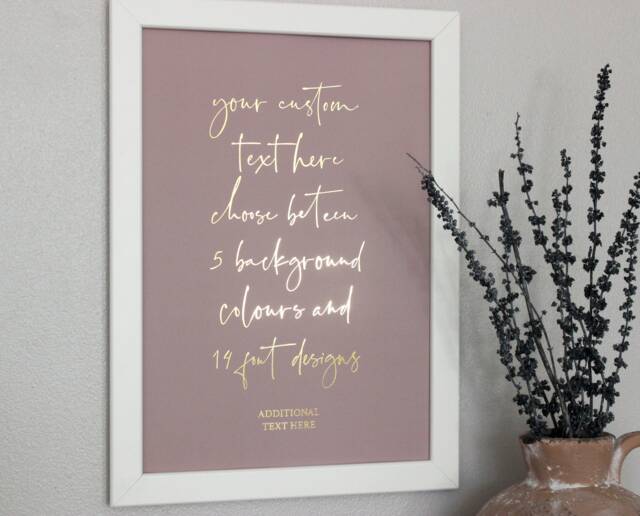 your custom
text here
choose beteen
5 background
colours and
14 font designs
ADDITIONAL
TEXT HERE